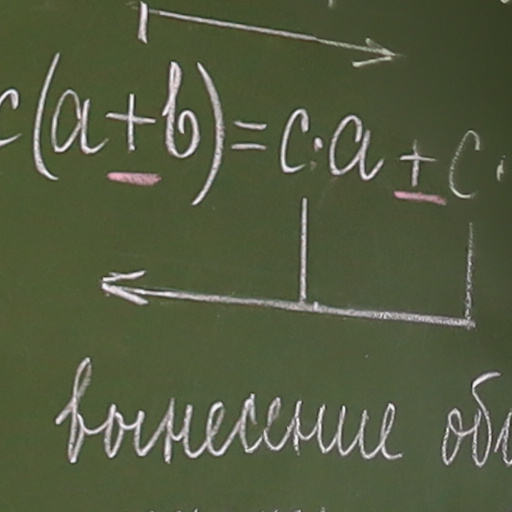 c(a+b)=c·a+c·
вынесение